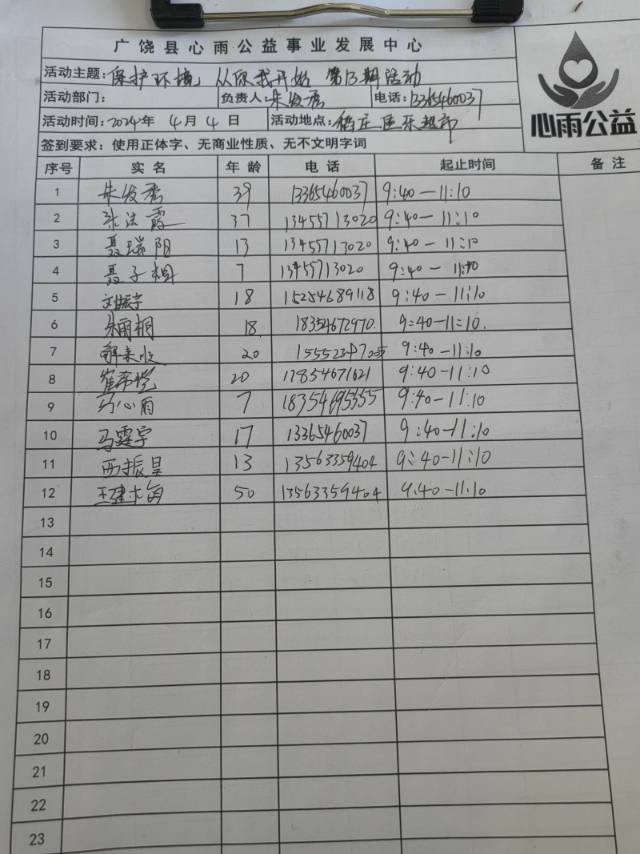 广饶县心雨公益事业发展中心
活动主题: 保护环境 从你我开始 第13期活动
活动部门: 负责人: 朱发秀 电话: 13365460037
活动时间: 2024年 4月4日 活动地点: 超市
签到要求: 使用正体字、无商业性质、无不文明字词
心雨公益
序号 实名 年龄 电话 起止时间 备注
1 朱发秀 39 13365460037 9:40—11:10
2 37 13455713020 9:40—11:10
3 聂瑞阳 13 13455713020 9:40—11:10
4 聂子桐 7 13455713020 9:40—11:10
5 18 15254689118 9:40—11:10
6 朱雨桐 18 18354672970. 9:40—11:10.
7 20 9:40—11:10
8 崔希悦 20 17854671621 9:40—11:10
9 心雨 7 18354695355 9:40—11:10
10 马霆宇 17 13365460037 9:40—11:10
11 西振皇 13 13563359404 9:40—11:10
12 50 13563359404 9:40—11:10
13
14
15
16
17
18
19
20
21
22
23